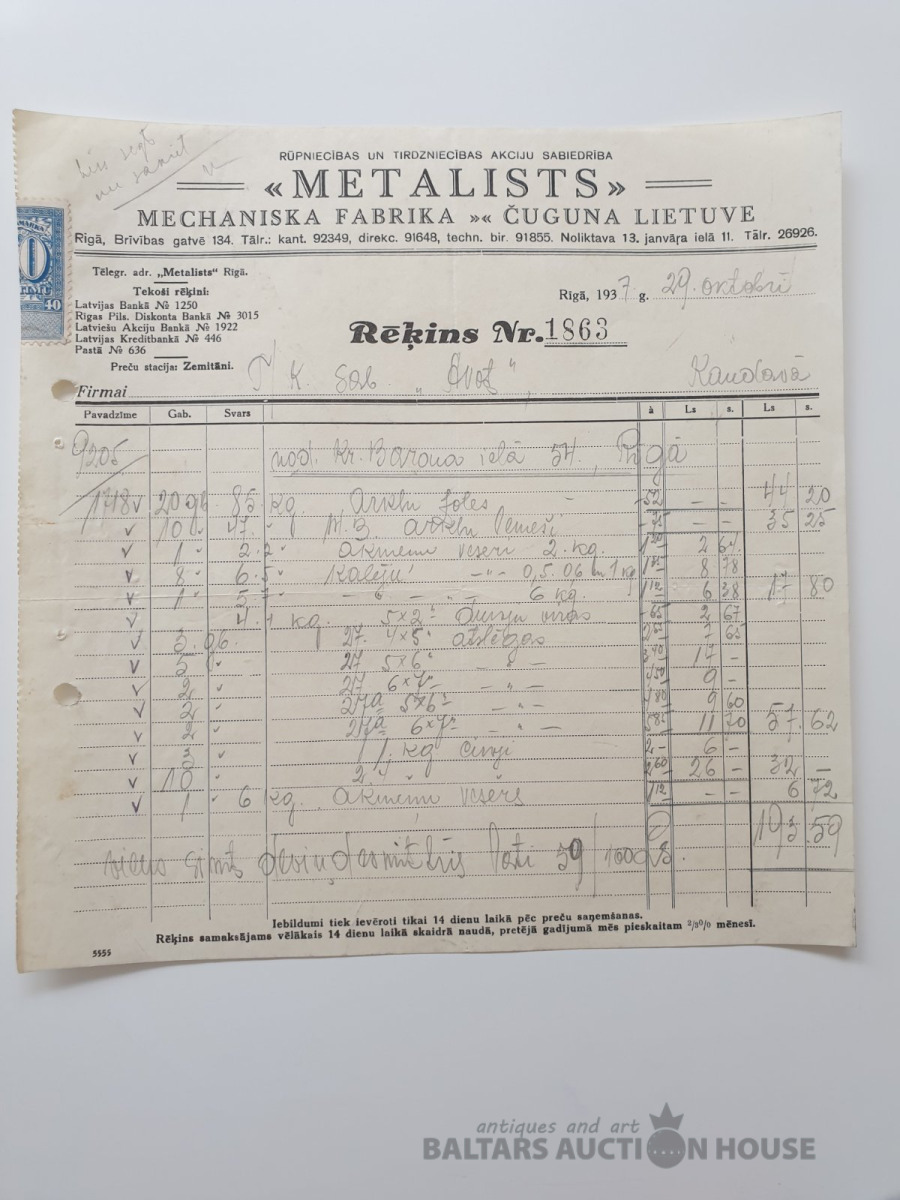 RŪPNIECĪBAS UN TIRDZNIECĪBAS AKCIJU SABIEDRĪBA
«METALISTS»
MECHANISKA FABRIKA »« ČUGUNA LIETUVE
Rīgā, Brīvības gatvē 134. Tālr.: kant. 92349, direkc. 91648, techn. bir. 91855. Noliktava 13. janvāra ielā 11. Tālr. 26926.
40
Tēlegr. adr. „Metalists" Rīgā.
Tekoši rēķini:
Latvijas Bankā № 1250
Rīgas Pils. Diskonta Bankā № 3015
Latviešu Akciju Bankā № 1922
Latvijas Kreditbankā № 446
Pastā № 636
Preču stacija: Zemitāni.
Rīgā, 1937 g. 29. oktobrī
Rēķins Nr. 1863
Firmai K. Sab. Kandavā
Pavadzīme Gab. Svars à Ls s. Ls s.
9205 Kr. Barona ielā 54, Rīgā
1718 v 20 gb 85 kg Arklu -52 - - 44 20
v 10 " 47. " M.B. arklu lemeši -75 - - 35 25
v 1 " 2.2 " akmeņu veseri 2. kg. 1 20 2 64
v 8 " 6.5 " Kalēju -"- 0,5. 06 un 1 kg 8 78
v 1 " - " - " - 6 kg. 1 12 6 38 17 80
v 4.1 kg. 5×2" -65 2 67
v 3. 27. 4×5" atslēgas 65
v 5 " 27 5×6" - " - 3 40 17 -
v 2 " 27 6×7" - " - 4 50 9 -
v 2 " 27a 5×6" - " - 4 80 9 60
v 2 " 27a 6×7" - " - 5 85 11 70 57. 62
v 3 " kg cirvji 2 - 6 -
v 10 " 2 60 26 - 32 -
v 1 " 6 kg. akmeņu vesers 1 12 - - 6 72
193.59
viens simts deviņdesmit trīs lati 59/100
Iebildumi tiek ievēroti tikai 14 dienu laikā pēc preču saņemšanas.
Rēķins samaksājams vēlākais 14 dienu laikā skaidrā naudā, pretējā gadījumā mēs pieskaitam 2/3% mēnesī.
5555
antiques and art
BALTARS AUCTION HOUSE